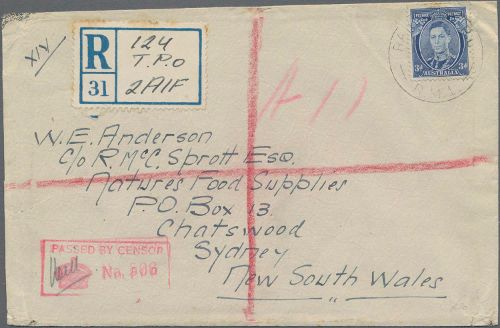 XIV
R
31
124
T.P.O
2AIF
A 11
POSTAGE
3D
3D
AUSTRALIA
W.E. Anderson
C/o R. McC. Sprott Esq.
Natures Food Supplies
P.O. Box 13
Chatswood
Sydney
New South Wales
PASSED BY CENSOR
No.